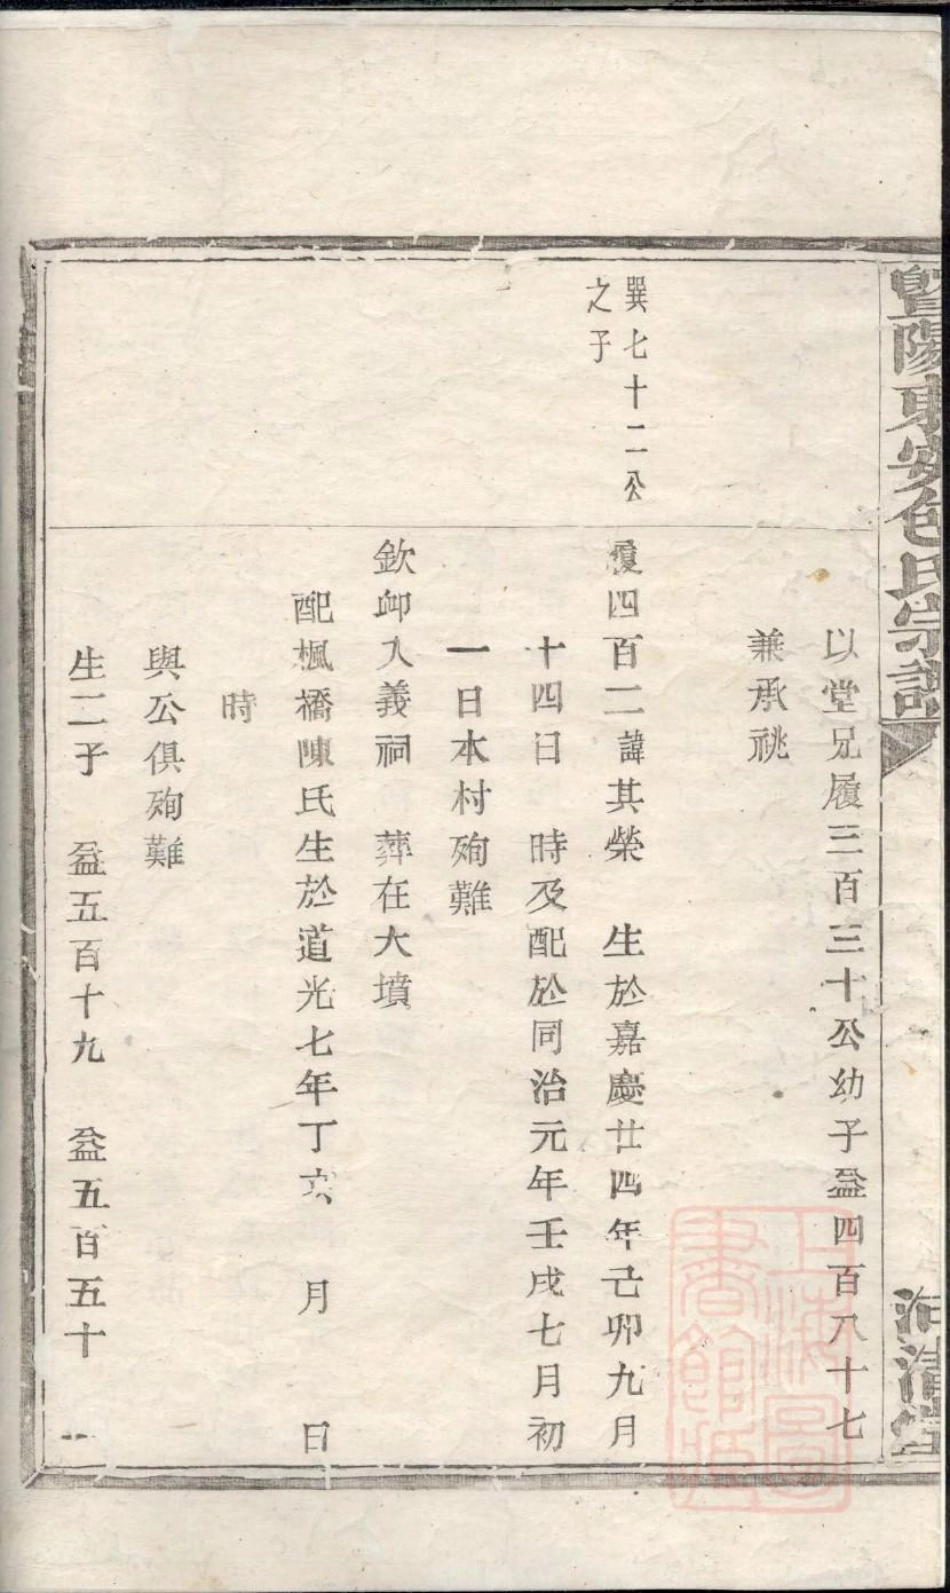 暨陽東安包氏宗譜
清堂
以堂兄履三百三十公幼子益四百八十七
兼承祧
巽七十二公
之子
履四百二諱其榮 生於嘉慶廿四年己卯九月
十四日 時及配於同治元年壬戌七月初
一日本村殉難
欽卹入義祠 葬在大墳
配楓橋陳氏生於道光七年丁亥 月 日
時
與公俱殉難
生二子 益五百十九 益五百五十
上海圖
書館藏